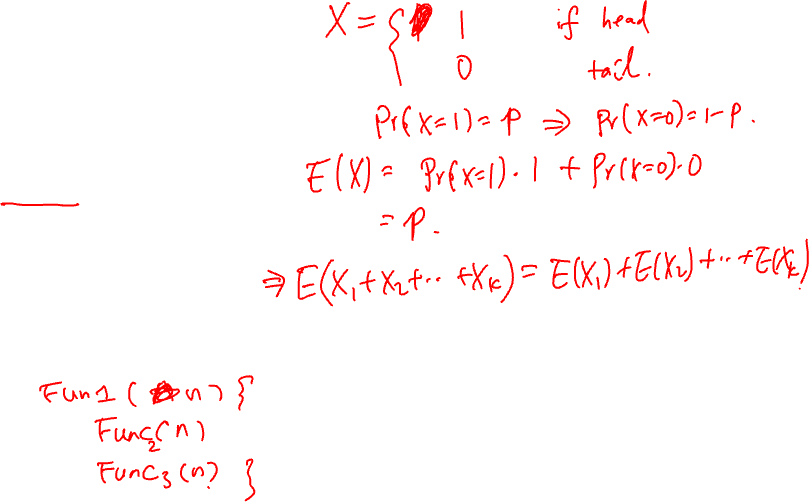 X = { 1 if head
0 tail.
Pr(X=1) = P ⇒ Pr(X=0) = 1-P.
E(X) = Pr(X=1)·1 + Pr(X=0)·0
= P.
⇒ E(X₁+X₂+··+Xₖ) = E(X₁)+E(X₂)+··+E(Xₖ)
Fun1(n) {
Func₂(n)
Func₃(n) }